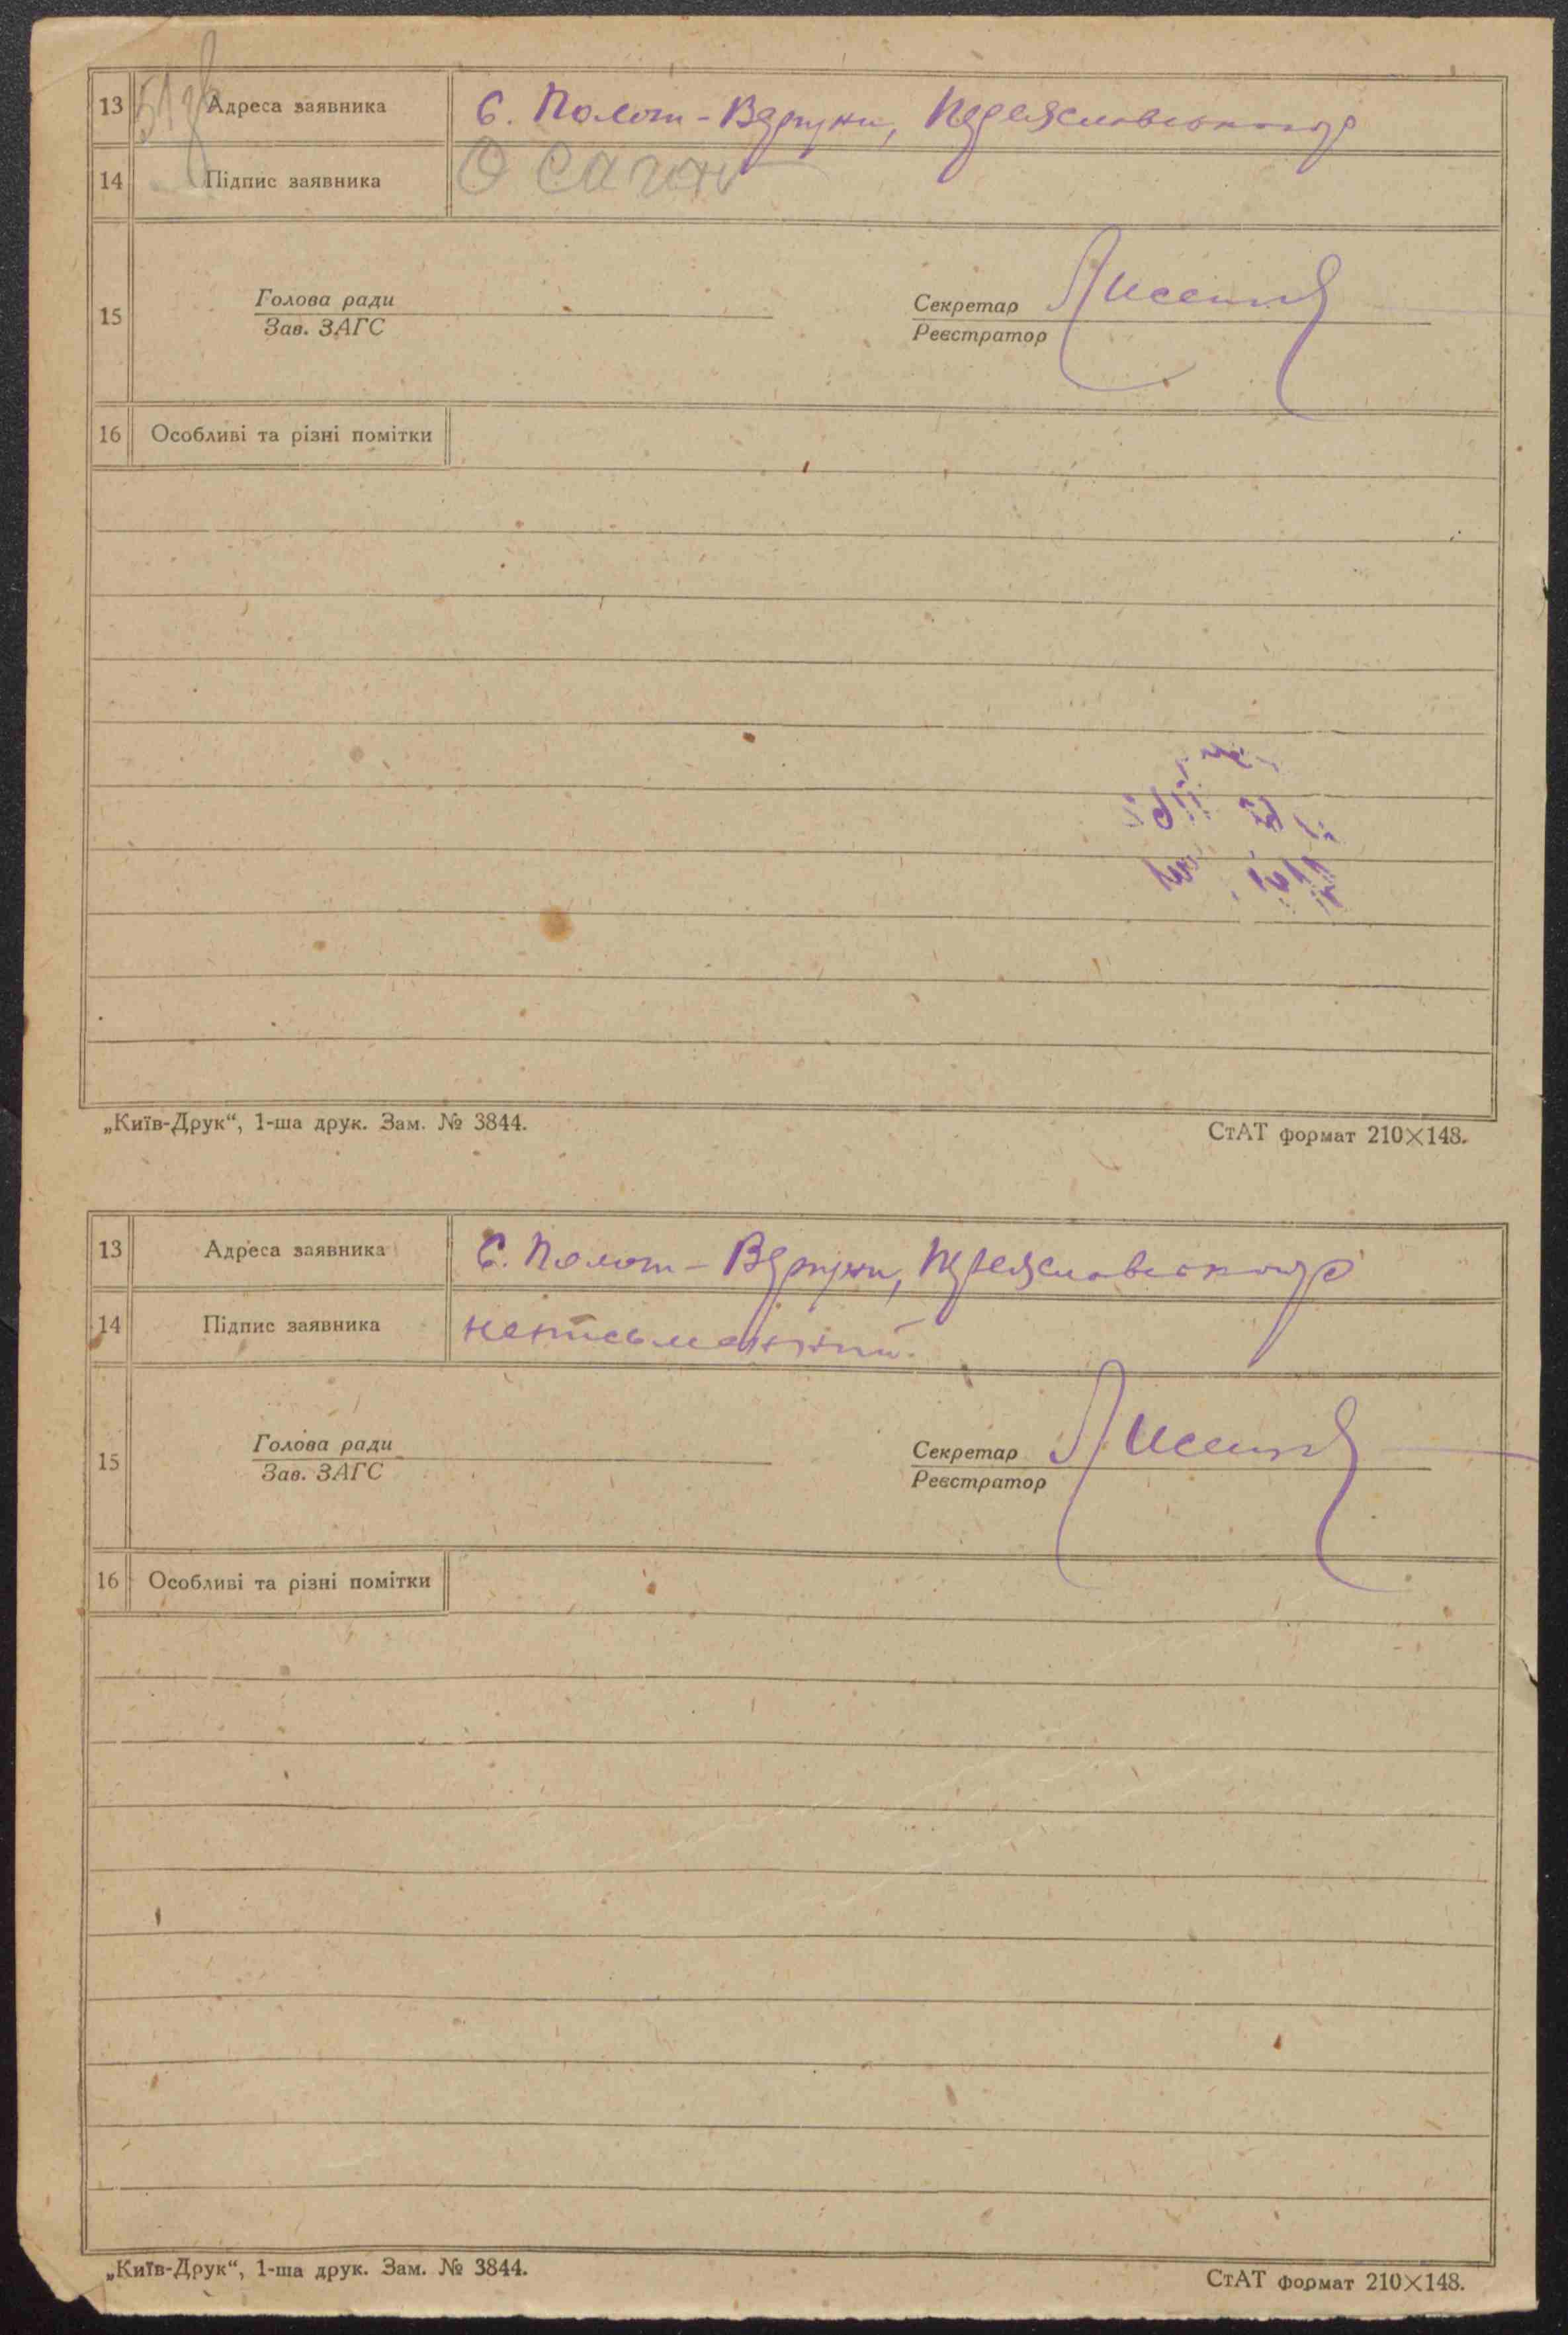 13 Адреса заявника С. Полог-Вергуни, Переяславського р
51 зв
14 Підпис заявника О Саган
15 Голова ради Секретар Лисенко
Зав. ЗАГС Реєстратор
16 Особливі та різні помітки
„Київ-Друк“, 1-ша друк. Зам. № 3844. СтАТ формат 210×148.
13 Адреса заявника С. Полог-Вергуни, Переяславського р
14 Підпис заявника неписьменний.
15 Голова ради Секретар Лисенко
Зав. ЗАГС Реєстратор
16 Особливі та різні помітки
„Київ-Друк“, 1-ша друк. Зам. № 3844. СтАТ формат 210×148.